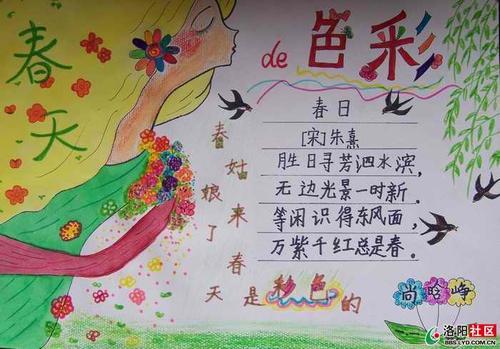 春天
de 色彩
春日
[宋]朱熹
胜日寻芳泗水滨，
无边光景一时新。
等闲识得东风面，
万紫千红总是春。
春姑娘来了春天
是彩色的
尚 峥
洛阳社区
BBS.LYD.COM.CN